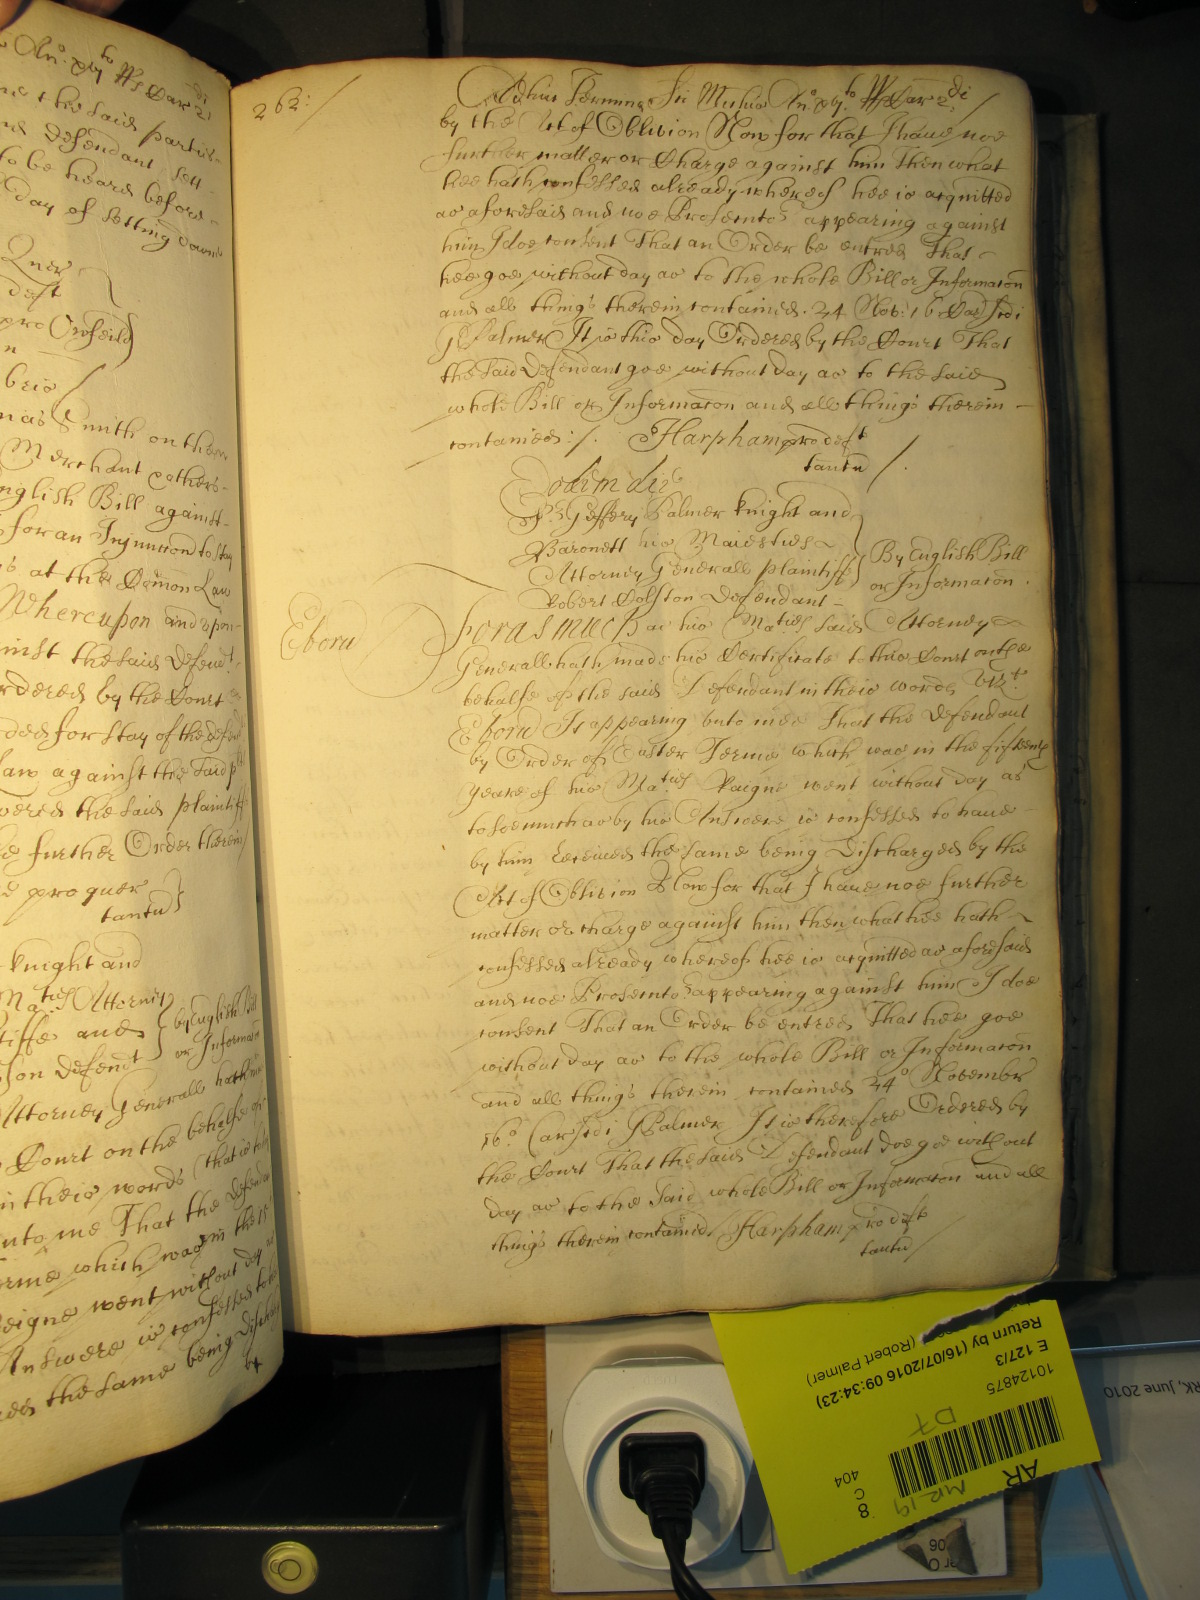 Ano. xvjto RRs Car 2di
the said parties
Defendant sett
to be heard before
day of setting downe
Quer
deft
pro Qner
n
brio
mas Smith on the
Merchant & others
nglish Bill against
for an Injunction to stay
at the Comon Law
Whereupon and upon
inst the said Defendt
rdered by the Court
ded for stay of the defend
Law against the said pl
wered the said plaintiff
further Order therein
pro quer
tantu
Knight and
Maties Attorney
tiffe and
by English Bill
or Informacon
son Defendt
Attorney Generall hath
Court on the behalfe of
in theis words (that is to
unto me That the Defend
erme which was in the 15
eigne went without day as
Answere is confessed to
the same being discharg
by
262:
Adhuc Termino Sci Michis Ano. xvjto RRs Car 2di
by the Act of Oblivion Now for that I have noe
further matter or Charge against him Then what
hee hath confessed already whereof hee is acquitted
as aforesaid and noe Prosecutor appearing against
him I doe consent That an Order be entred That
hee goe without day as to the whole Bill or Informacon
and all things therein contained. 24 Nov: 16 Car scdi
G Palmer It is this day Ordered by the Court That
the said Defendant goe without day as to the said
whole Bill or Informacon and all things therein
contained:/. Harpham pro deft
tantu /.
Eodem die
Sr Geffery Palmer Knight and
Baronett his Maiesties
Attorney Generall plaintiff
Robert Colston Defendant
By English Bill
or Informacon.
Eboru
Forasmuch as his Maties said Attorney
Generall hath made his Certificate to this Court on the
behalfe of the said Defendant in theis words vizt
Eboru It appearing unto mee That the Defendant
by Order of Easter Terme which was in the fifteenth
yeare of his Maties Raigne went without day as
to soe much as by his Answere is confessed to have
by him received the same being discharged by the
Act of Oblivion Now for that I have noe further
matter or charge against him then what hee hath
confessed already whereof hee is acquitted as aforesaid
and noe Prosecutor appearing against him I doe
consent That an Order be entred That hee goe
without day as to the whole Bill or Informacon
and all things therein contained 24o November
16o Car scdi G Palmer It is therefore Ordered by
the Court That the said Defendant doe goe without
day as to the said whole Bill or Informacon and all
things therein contained Harpham pro deft
tantu
Return by (16/07/2016 09:34:23)
(Robert Palmer)
E 127/3
10124875
D7
AR
8
C
404
RK, June 2010
06